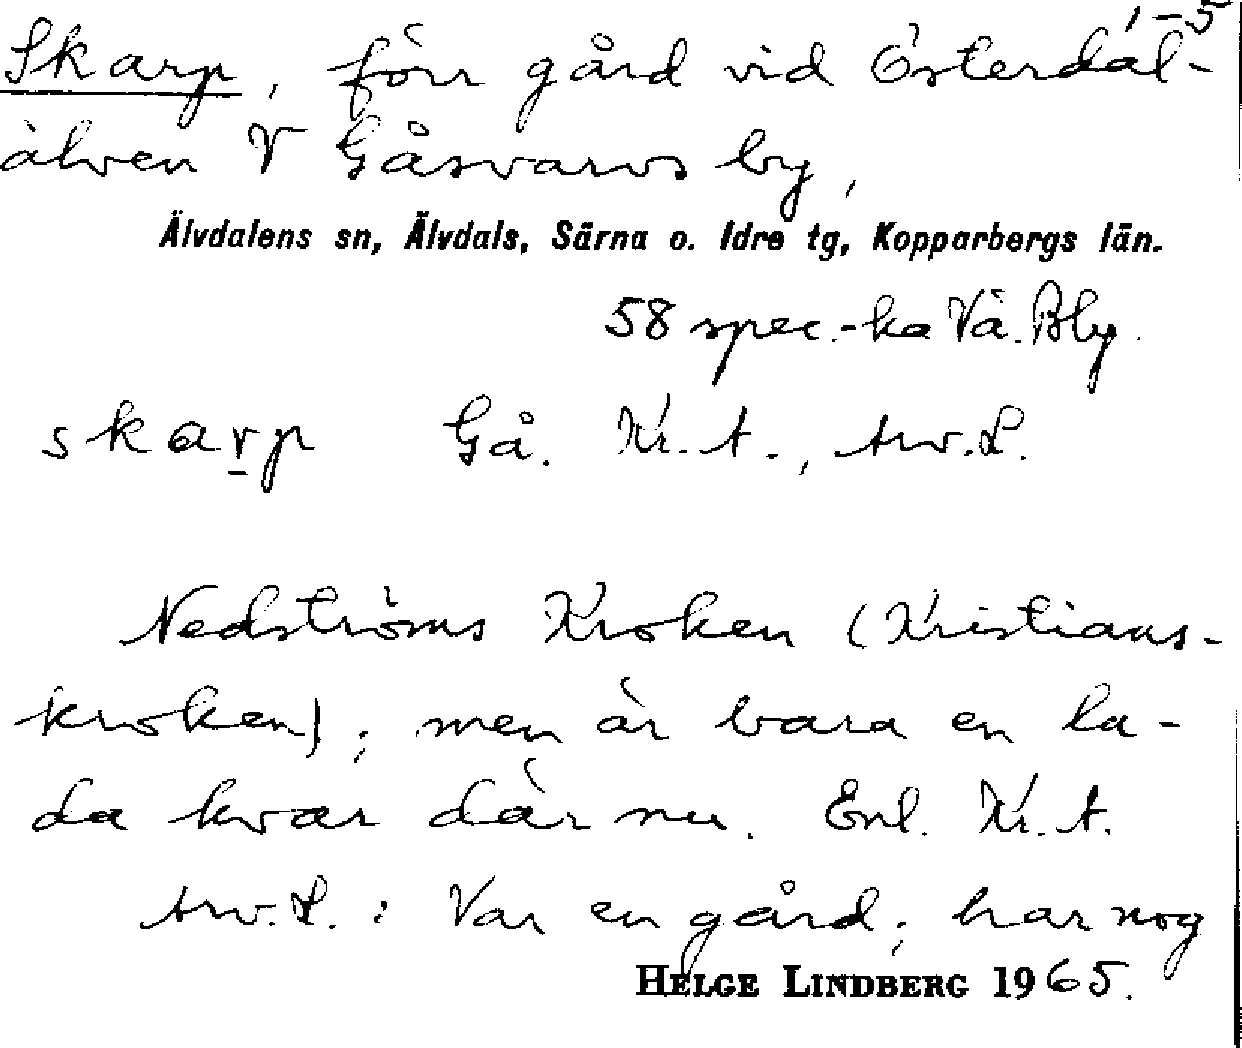 1-5
Skarp, förr gård vid Österdal-
älven V Gåsvarvs by,
Älvdalens sn, Älvdals, Särna o. Idre tg, Kopparbergs län.
58 spec.-ka Vä. Bly.
skarp Gå. Kr. A., Arv. L.
Nedströms Kroken (Kristians-
kroken); men är bara en la-
da kvar där nu. Enl. Kr. A.
Arv. L.: Var en gård; har nog
HELGE LINDBERG 1965.